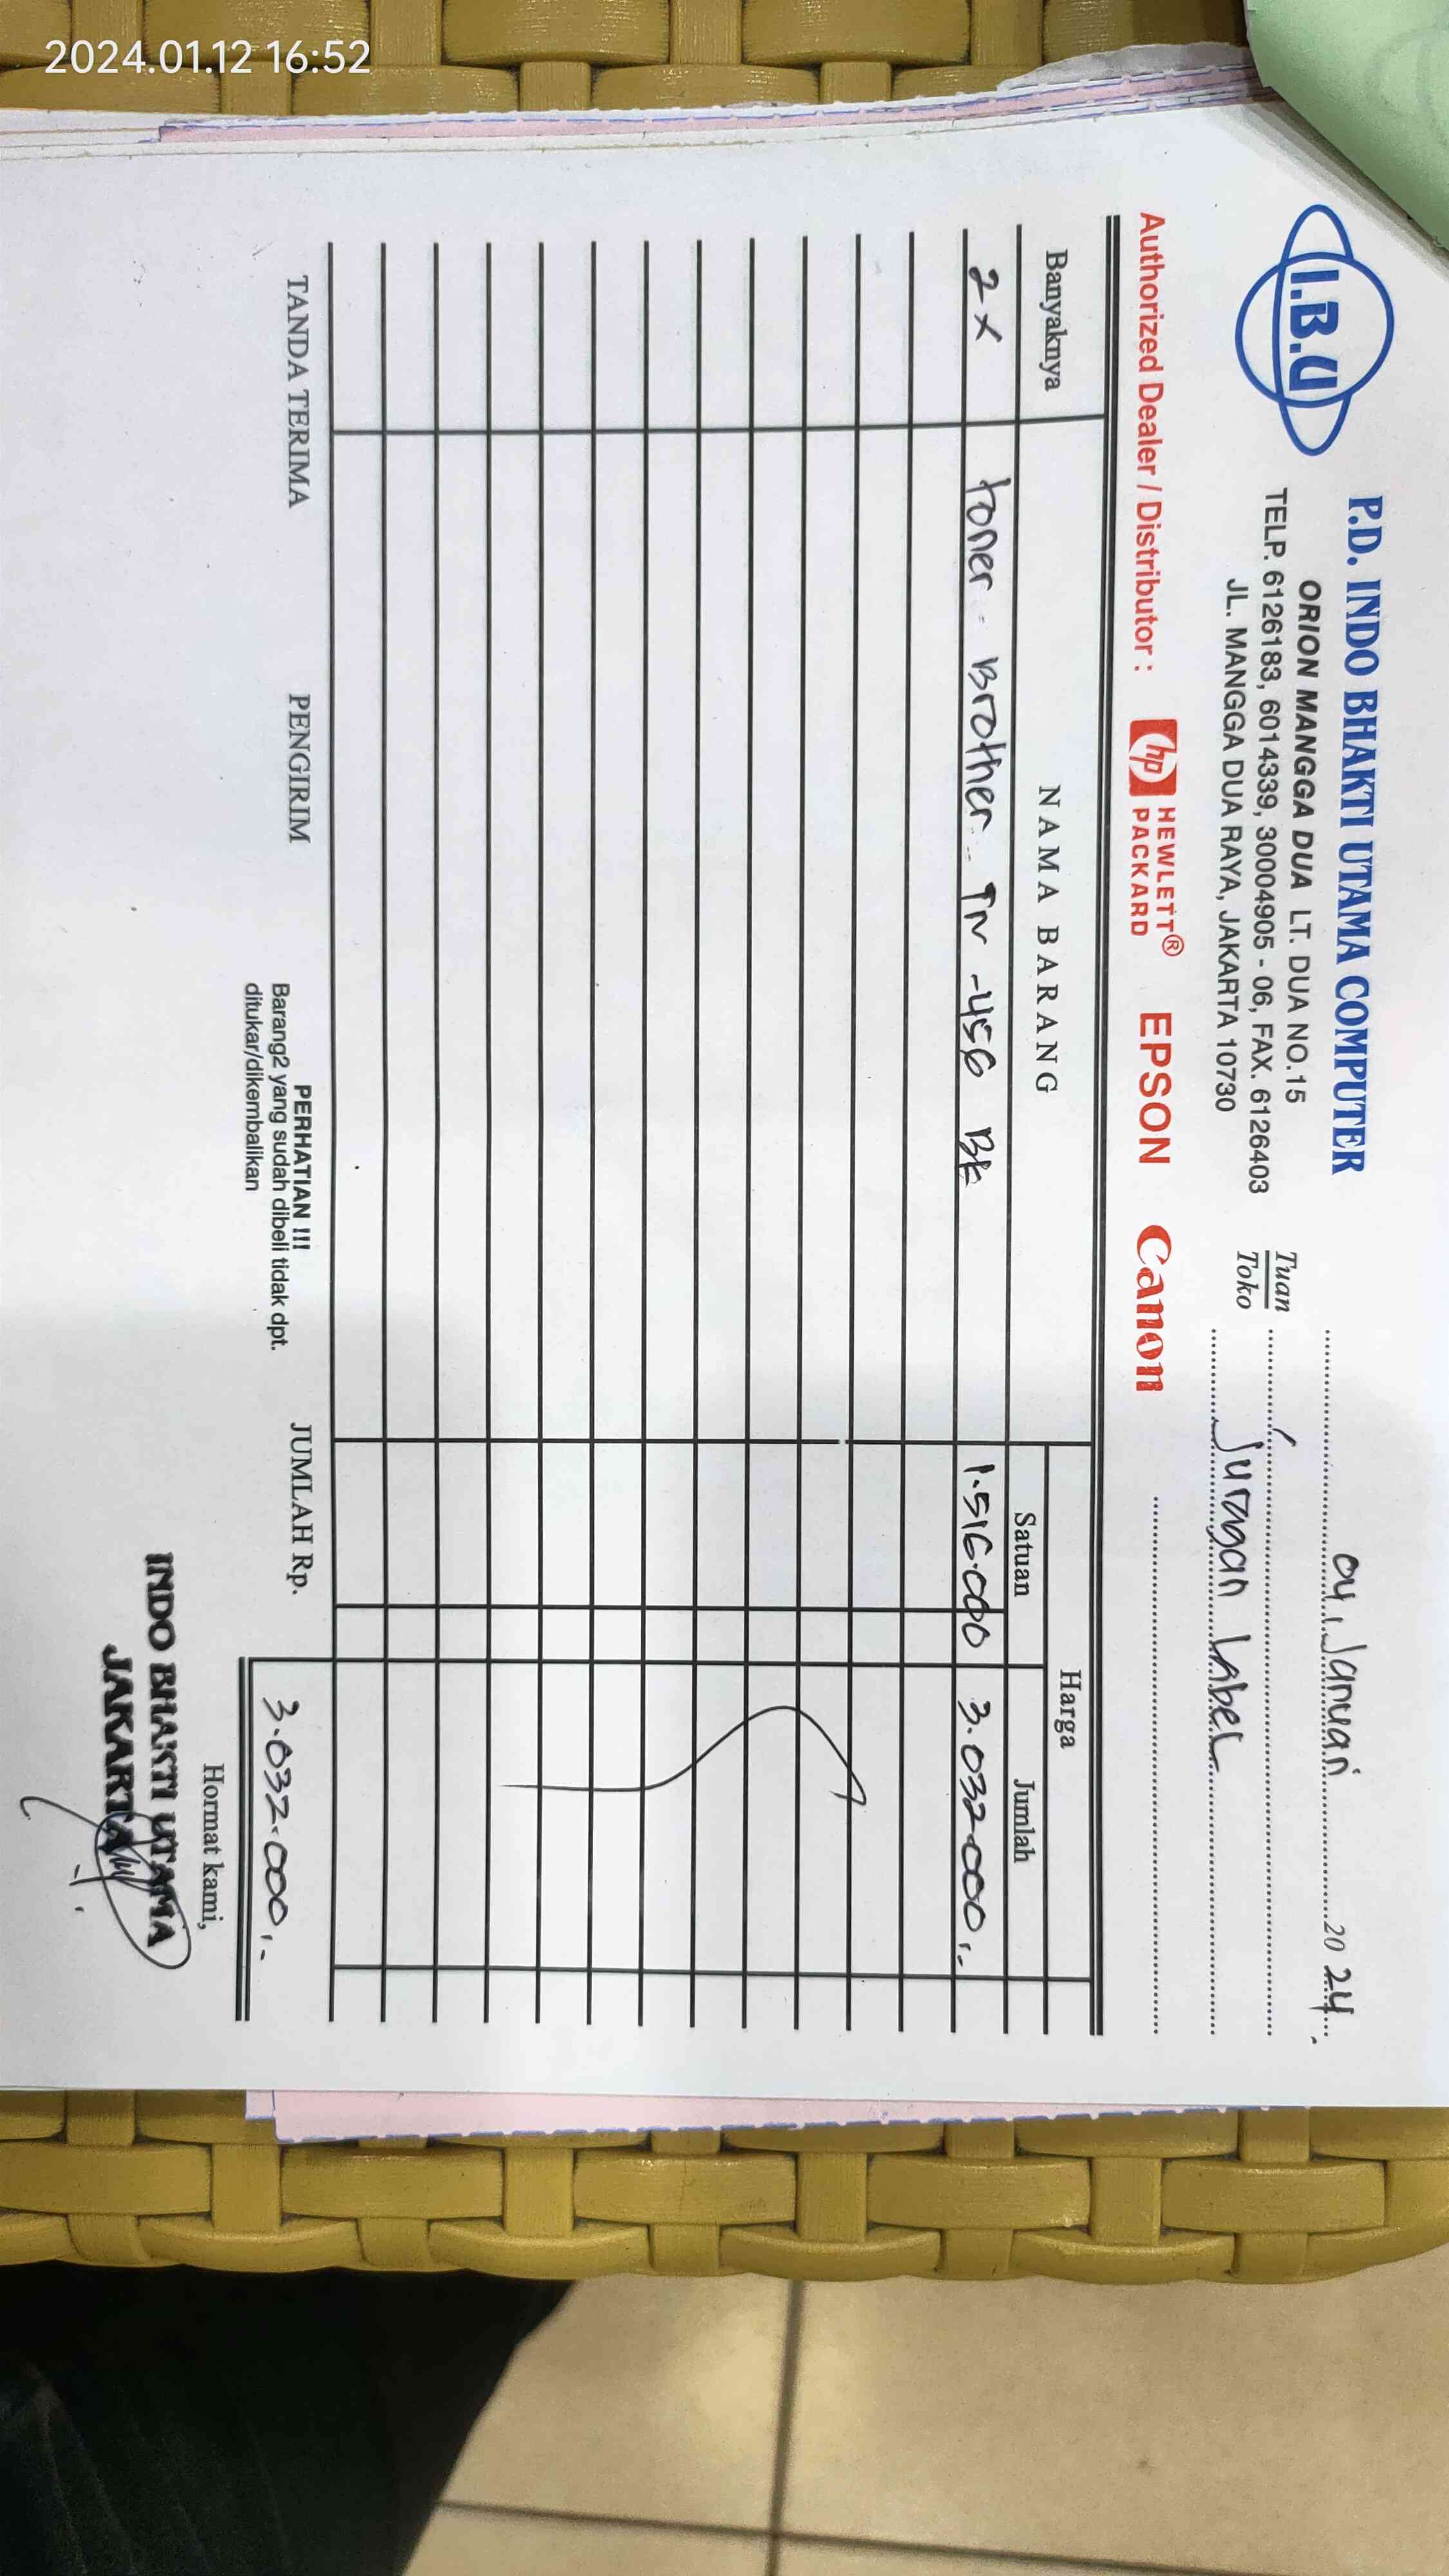 2024.01.12 16:52
I.B.U
P.D. INDO BHAKTI UTAMA COMPUTER
ORION MANGGA DUA LT. DUA NO.15
TELP. 6126183, 6014339, 30004905 - 06, FAX. 6126403
JL. MANGGA DUA RAYA, JAKARTA 10730
04, Januari 2024.
Tuan
Toko
Juragan Label
Authorized Dealer / Distributor : hp HEWLETT® PACKARD EPSON Canon
Banyaknya NAMA BARANG Harga
Satuan Jumlah
2 x toner - Brother - TN -456 BK 1.516.000 3.032.000,-
TANDA TERIMA PENGIRIM JUMLAH Rp. 3.032.000,-
PERHATIAN !!!
Barang2 yang sudah dibeli tidak dpt.
ditukar/dikembalikan
Hormat kami,
INDO BHAKTI UTAMA
JAKARTA